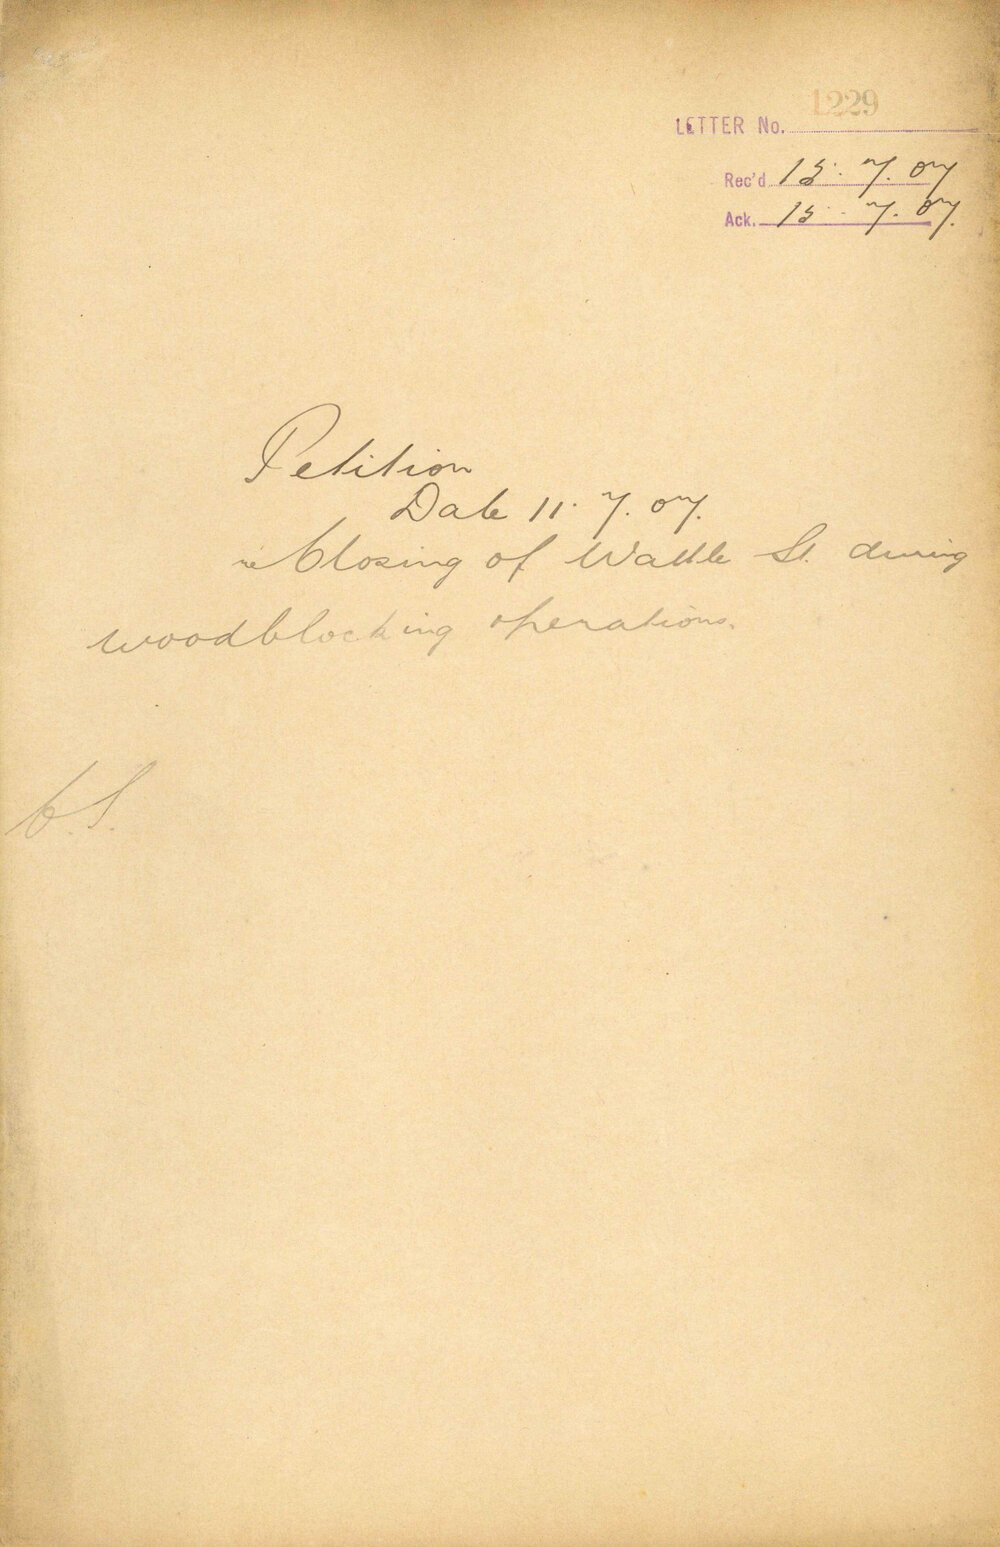 1229
LETTER No.
Rec'd 15. 7. 07
Ack. 15. 7. 07.
Petition
Date 11. 7. 07.
re Closing of Wattle St. during
woodblocking operations.
C.S.